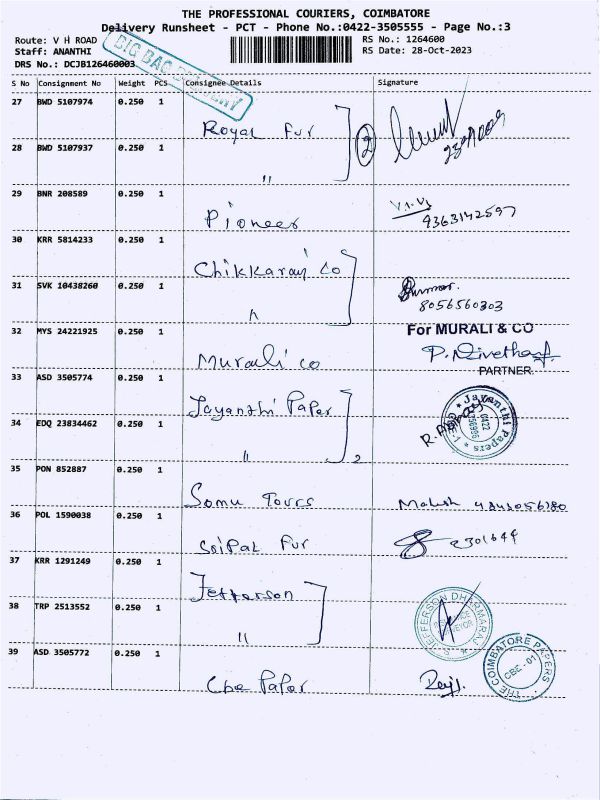 THE PROFESSIONAL COURIERS, COIMBATORE
Delivery Runsheet - PCT - Phone No.:0422-3505555 - Page No.:3
Route: V H ROAD
RS No.: 1264600
Staff: ANANTHI
RS Date: 28-Oct-2023
DRS No.: DCJB126460003
BIG BAG DELIVERY
S No Consignment No Weight PCS Consignee Details Signature
27 BWD 5107974 0.250 1
Royal Fur
2
28 BWD 5107937 0.250 1
"
29 BNR 208589 0.250 1
Pioneer
9363142597
30 KRR 5814233 0.250 1
Chikkarani Co
31 SVK 10438260 0.250 1
"
8056560303
32 MYS 24221925 0.250 1
Murali co
For MURALI & CO
P. Nivetha
PARTNER.
33 ASD 3505774 0.250 1
Jayanthi Paper
Jayanthi Papers
34 EDQ 23834462 0.250 1
"
2
35 PON 852887 0.250 1
Somu Tours
36 POL 1590038 0.250 1
SriPal Fur
2301644
37 KRR 1291249 0.250 1
Jefferson
38 TRP 2513552 0.250 1
"
JEFFERSON DHARMARAJ
39 ASD 3505772 0.250 1
Cbe Paper
THE COIMBATORE PAPERS
CBE - 01